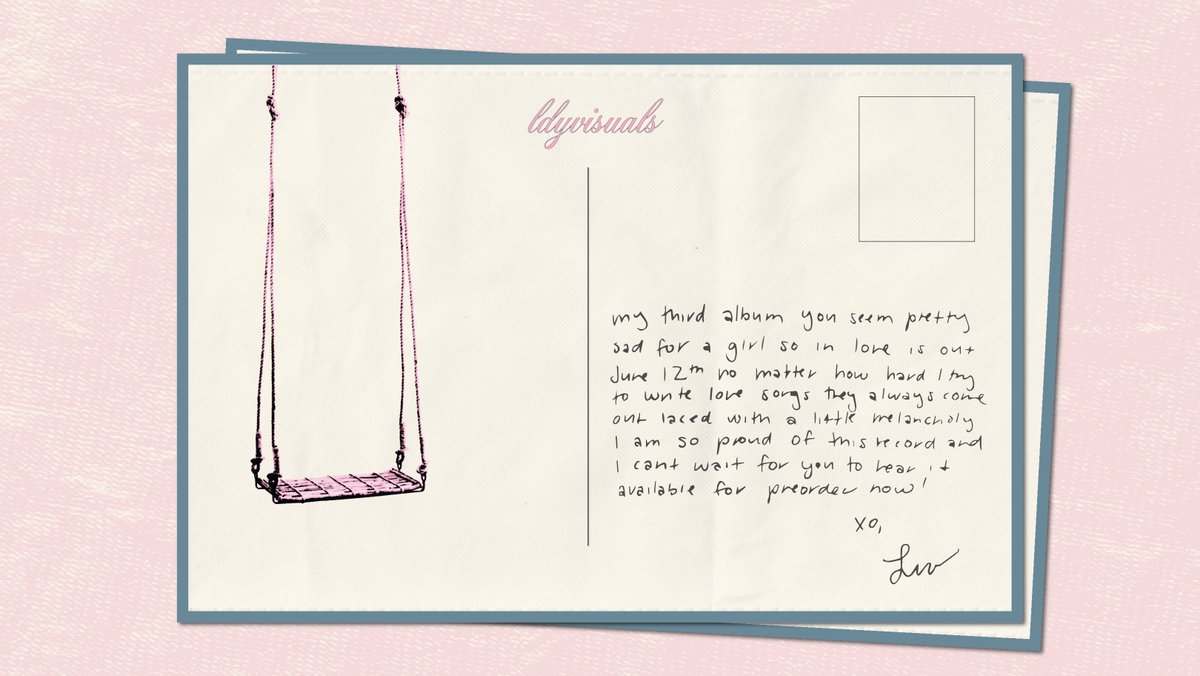 ldyvisuals
my third album you seem pretty
sad for a girl so in love is out
June 12th no matter how hard I try
to write love songs they always come
out laced with a little melancholy
I am so proud of this record and
I cant wait for you to hear it
available for preorder now!
xo,
Liv